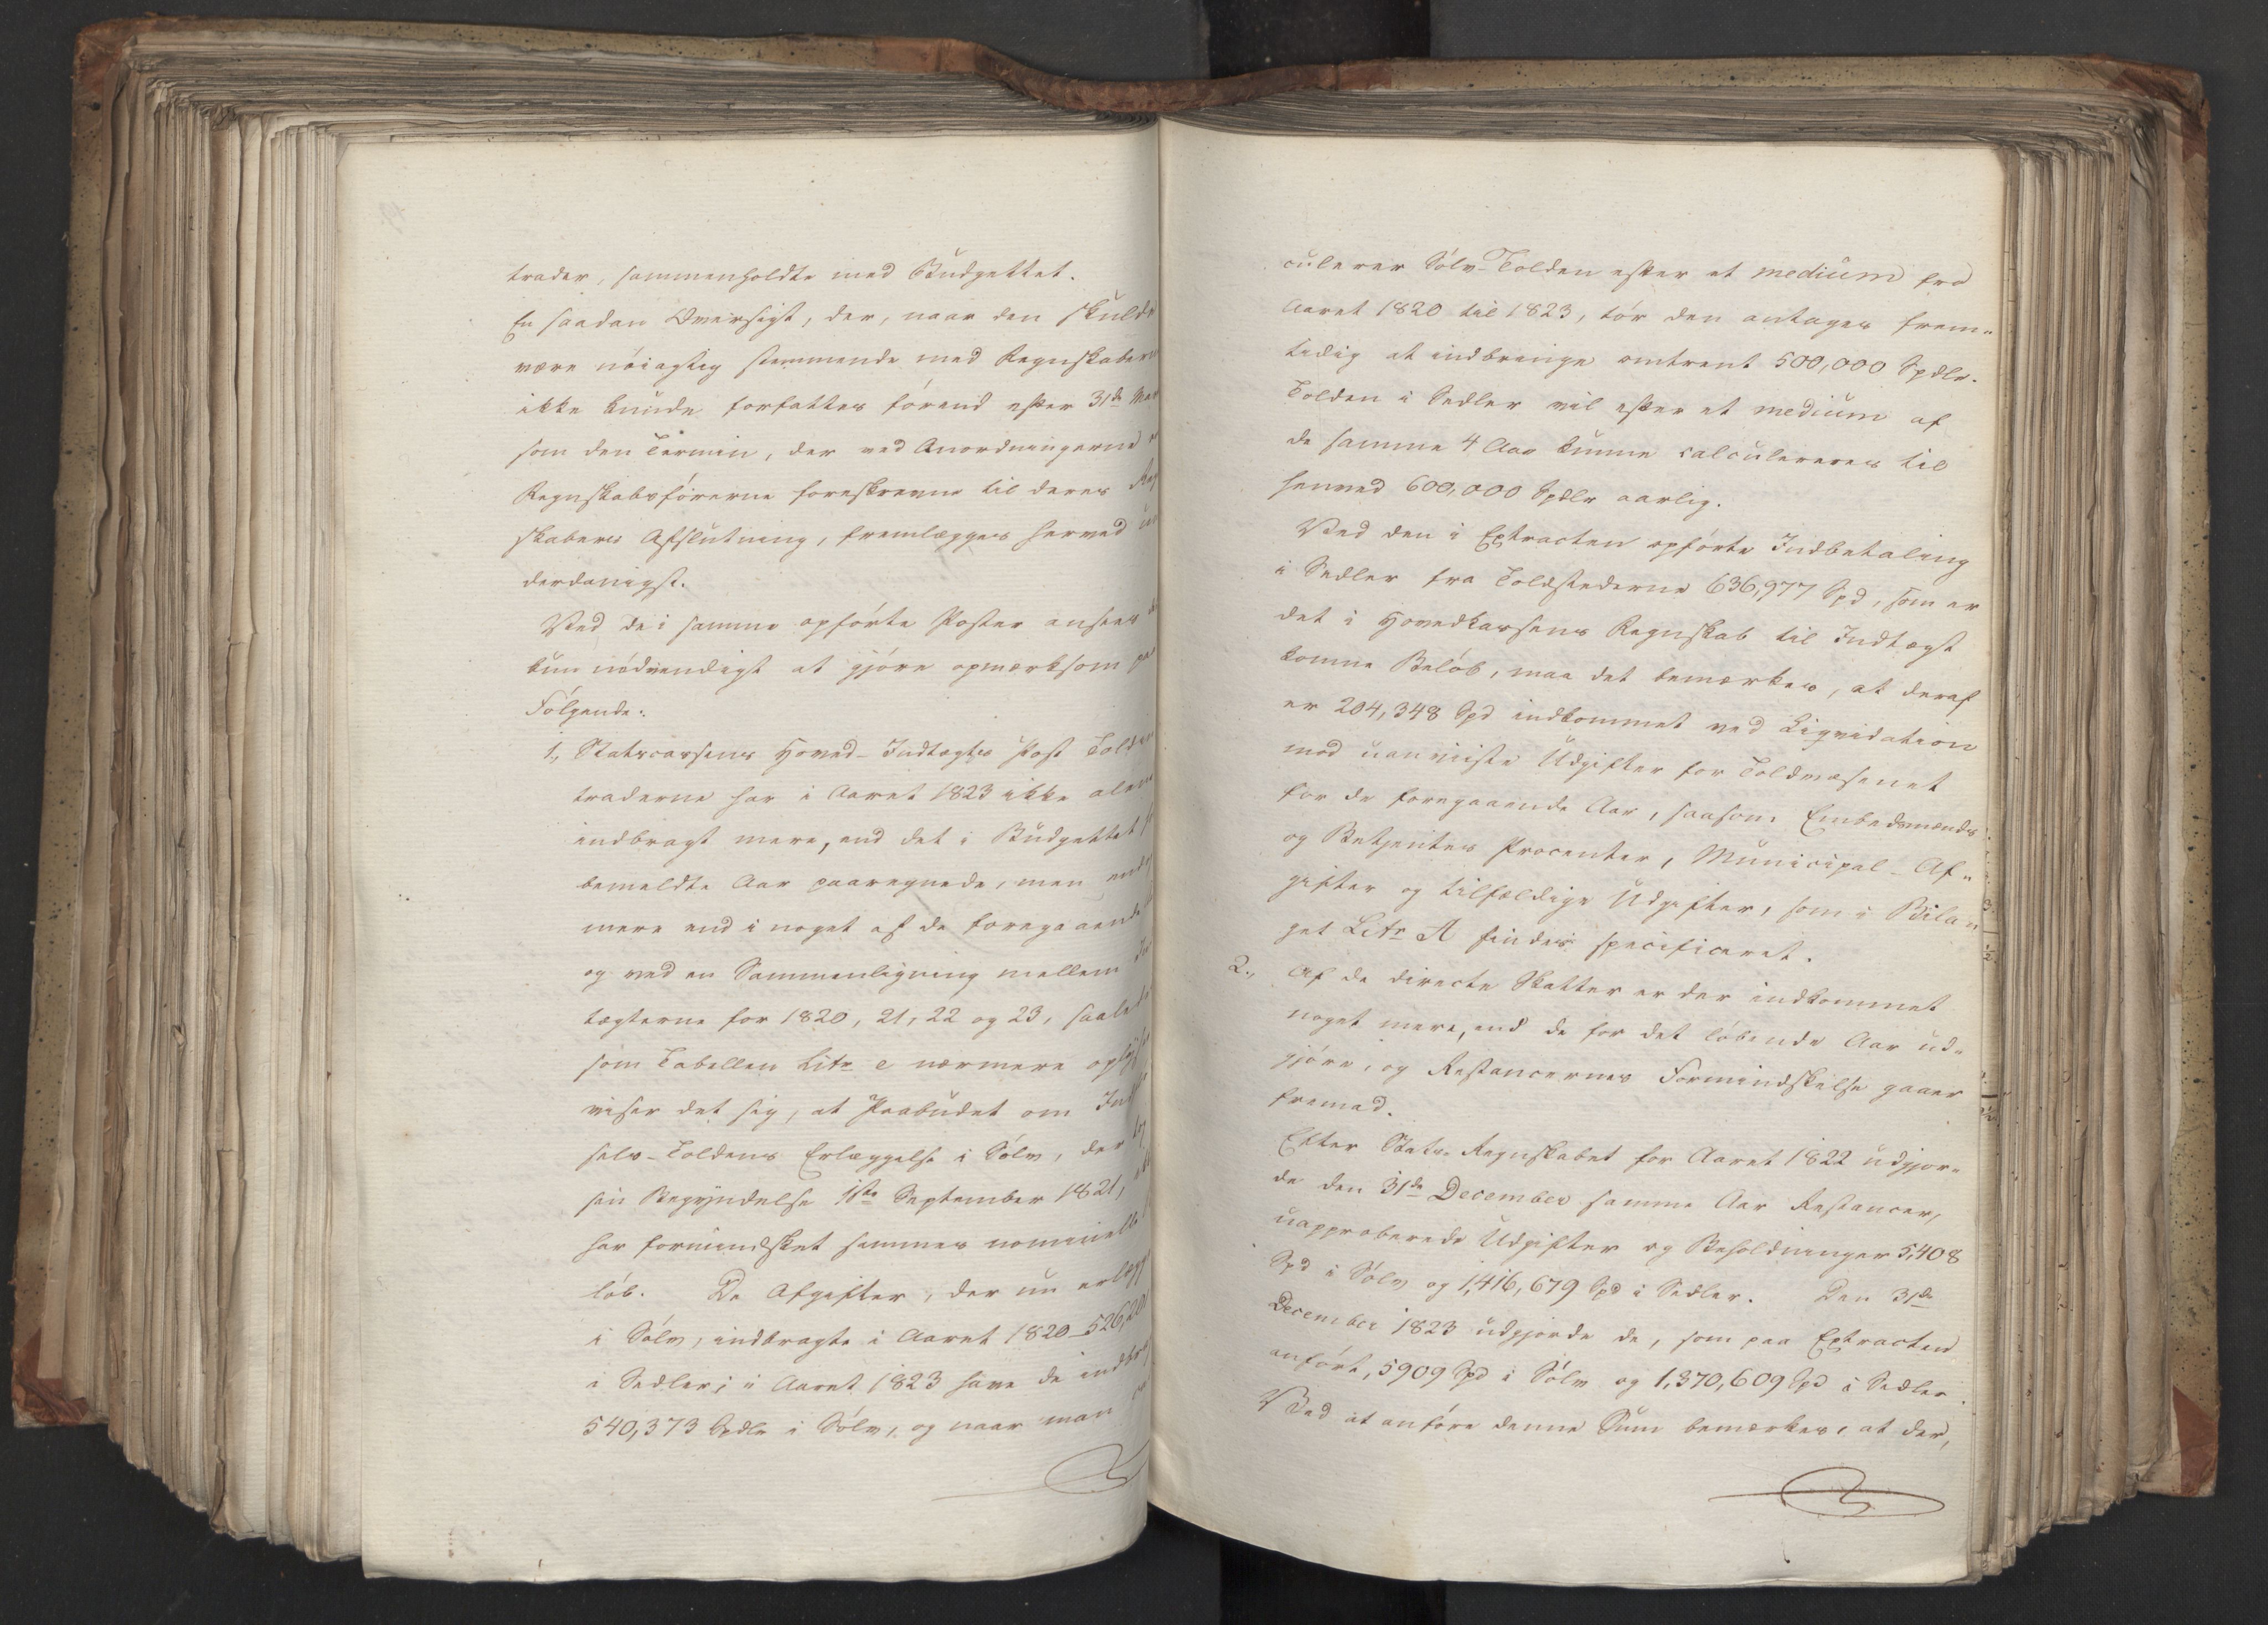 trader, sammenholdte med Budgettet.
En saadan Oversigt, der, naar den skulde
være nöiagtig stemmende med Regnskaberne
ikke kunde forfattes förend efter 31de
som den Termin, der ved Anordningerne
Regnskabsförerne foreskrevne til deres
skabers Afslutning, fremlægges herved
derdanigst.
Ved de i samme opförte Poster ansees
kun nödvendigt at gjöre opmærksom
Fölgende:
1., Statscassens Hoved-Indtægts Post
traderne har i Aaret 1823 ikke
indbragt mere, end det i Budgettet
bemeldte Aar paaregnede, men
mere end i noget af de foregaaende
og ved en Sammenligning mellem
tægterne for 1820, 21, 22 og 23,
som Tabellen Litr c nærmere
viser det sig, at Paabudet om
sels-Toldens Erlæggelse i Sölv, der
sin Begyndelse 1ste September 1821,
har formindsket sammes nominelle
löb. De Afgifter, der nu
i Sölv, indbragte i Aaret 1820
i Sedler; i Aaret 1823 have de
540,373 Spdlr i Sölv, og naar man
culerer Sölv-Tolden efter et medium fra
Aaret 1820 til 1823, tör den antages frem-
tidig at indbringe omtrent 500,000 Spdlr.
Tolden i Sedler vil efter et medium af
de samme 4 Aar kunne calculereres til
henved 600,000 Spdlr aarlig.
Ved den i Extracten opförte Indbetaling
i Sedler fra Toldstederne 636,977 Spd, som er
det i Hovedkassens Regnskab til Indtægt
komne Belöb, maa det bemærkes, at deraf
er 204,348 Spd indkommet ved Liqvidation
mod uanviiste Udgifter for Toldvæsenet
for de foregaaende Aar, saasom Embedsmænds
og Betjentes Procenter, Municipal-Af-
gifter og tilfældige Udgifter, som i Bila-
get Litr A findes specificeret.
2., Af de directe Skatter er der indkommet
noget mere, end de for det löbende Aar ud-
gjöre, og Restancernes Formindskelse gaaer
fremad.
Efter Stats-Regnskabet for Aaret 1822 udgjor-
de den 31de December samme Aar Restancer,
uapproberede Udgifter og Beholdninger 5,408
Spd i Sölv og 1,416,679 Spd i Sedler. Den 31de
December 1823 udgjorde de, som paa Extracten
anfört, 5909 Spd i Sölv og 1,370,609 Spd i Sedler.
Ved at anföre denne Sum bemærkes, at der,